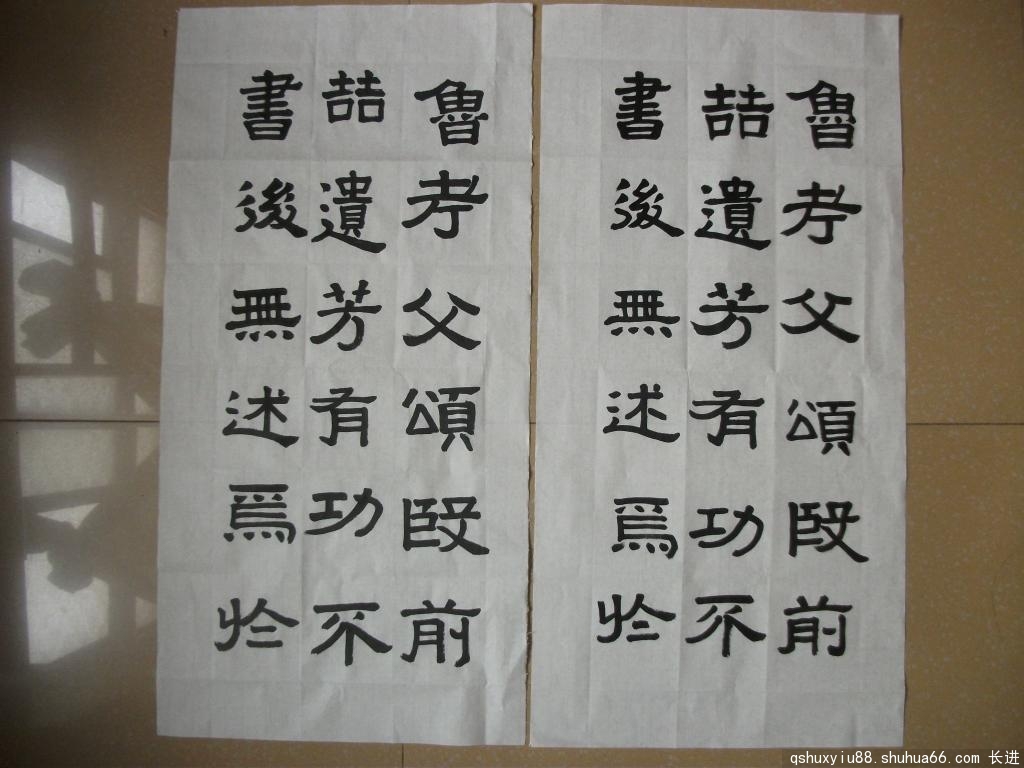 魯考父頌殷前
喆遺芳有功不
書後無述焉於
魯考父頌殷前
喆遺芳有功不
書後無述焉於
qshuxyiu88.shuhua66.com 长进